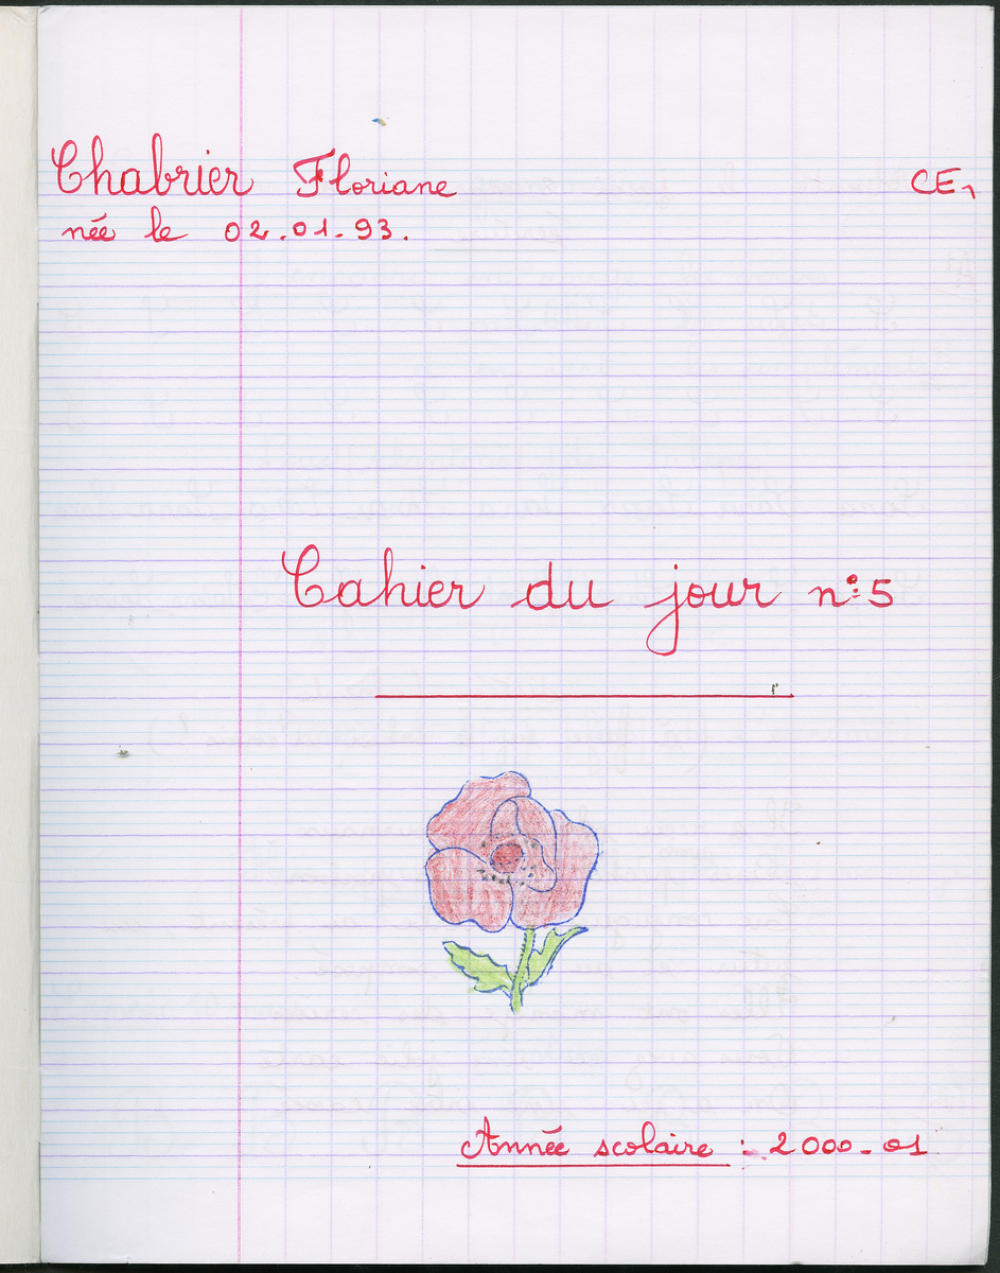 Chabrier Floriane CE1
née le 02.01.93.
Cahier du jour n°5
Année scolaire : 2000-01